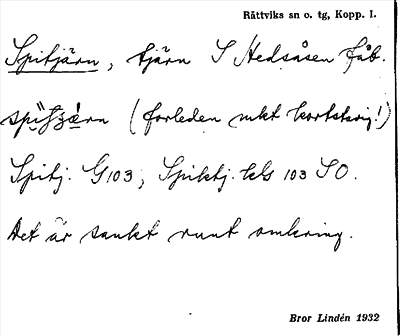 Rättviks sn o. tg, Kopp. l.
Spitjärn, tjärn S Hedsåsen fåb.
(förleden mkt kortstavig!)
Spitj. G103, Spiktj. kls 103 SO.
Det är sankt runt omkring.
Bror Lindén 1932